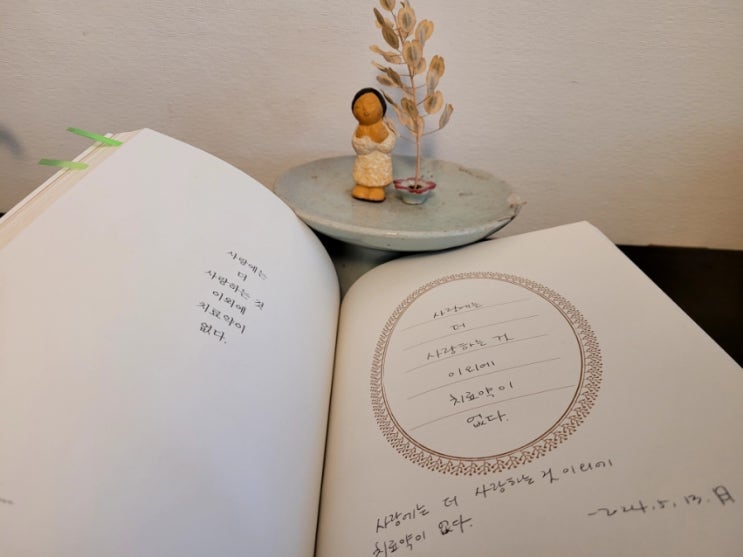 사랑에는
더
사랑하는 것
이외에
치료약이
없다.
사랑에는
더
사랑하는 것
이외에
치료약이
없다.
사랑에는 더 사랑하는 것 이외에
치료약이 없다.
-2024. 5. 13. 月